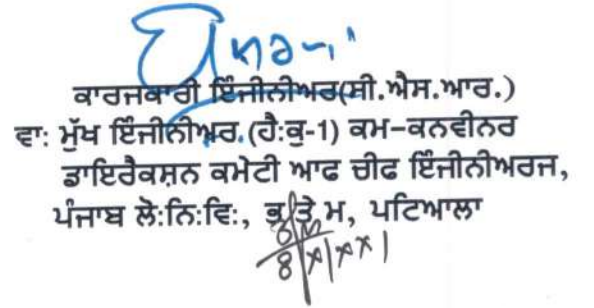 ਕਾਰਜਕਾਰੀ ਇੰਜੀਨੀਅਰ(ਸੀ.ਐਸ.ਆਰ.)
ਵਾ: ਮੁੱਖ ਇੰਜੀਨੀਅਰ (ਹੈ:ਕੁ-1) ਕਮ-ਕਨਵੀਨਰ
ਡਾਇਰੈਕਸ਼ਨ ਕਮੇਟੀ ਆਫ ਚੀਫ ਇੰਜੀਨੀਅਰਜ,
ਪੰਜਾਬ ਲੋ:ਨਿ:ਵਿ:, ਭ ਤੇ ਮ, ਪਟਿਆਲਾ